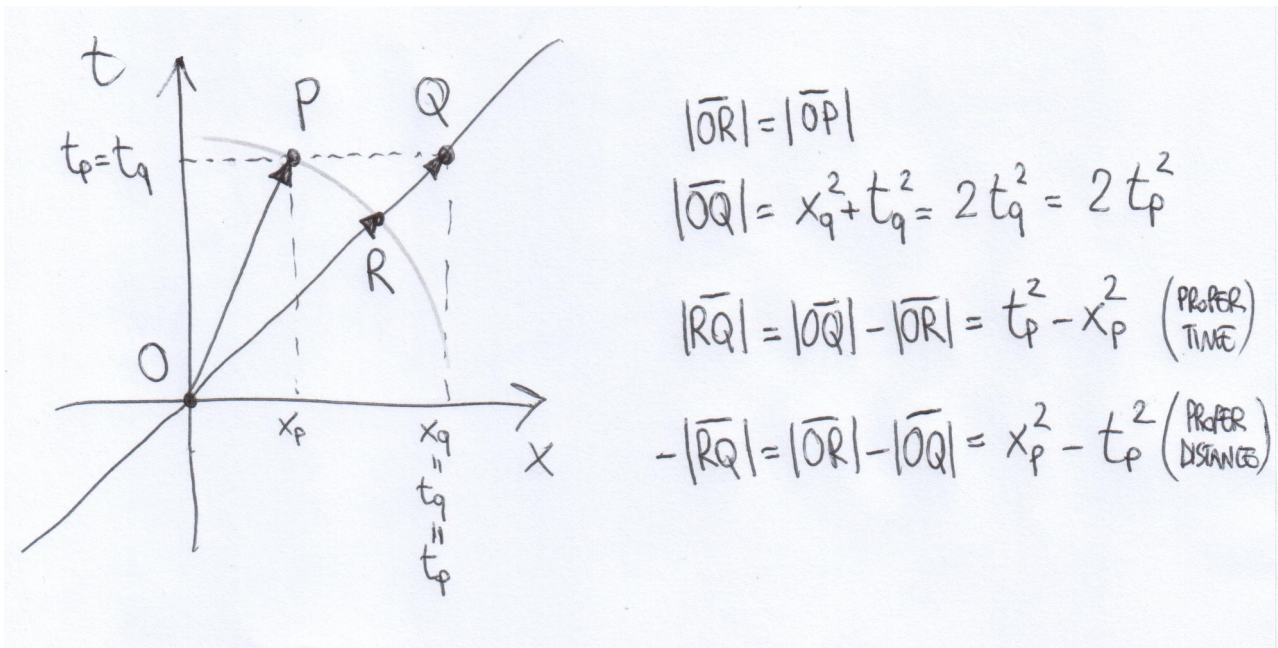 t
P
Q
tₚ=t_q
R
O
xₚ
x_q
"
t_q
"
tₚ
x
|O̅R̅| = |O̅P̅|
|O̅Q̅| = x_q² + t_q² = 2 t_q² = 2 tₚ²
|R̅Q̅| = |O̅Q̅| - |O̅R̅| = tₚ² - xₚ² (PROPER TIME)
-|R̅Q̅| = |O̅R̅| - |O̅Q̅| = xₚ² - tₚ² (PROPER DISTANCE)